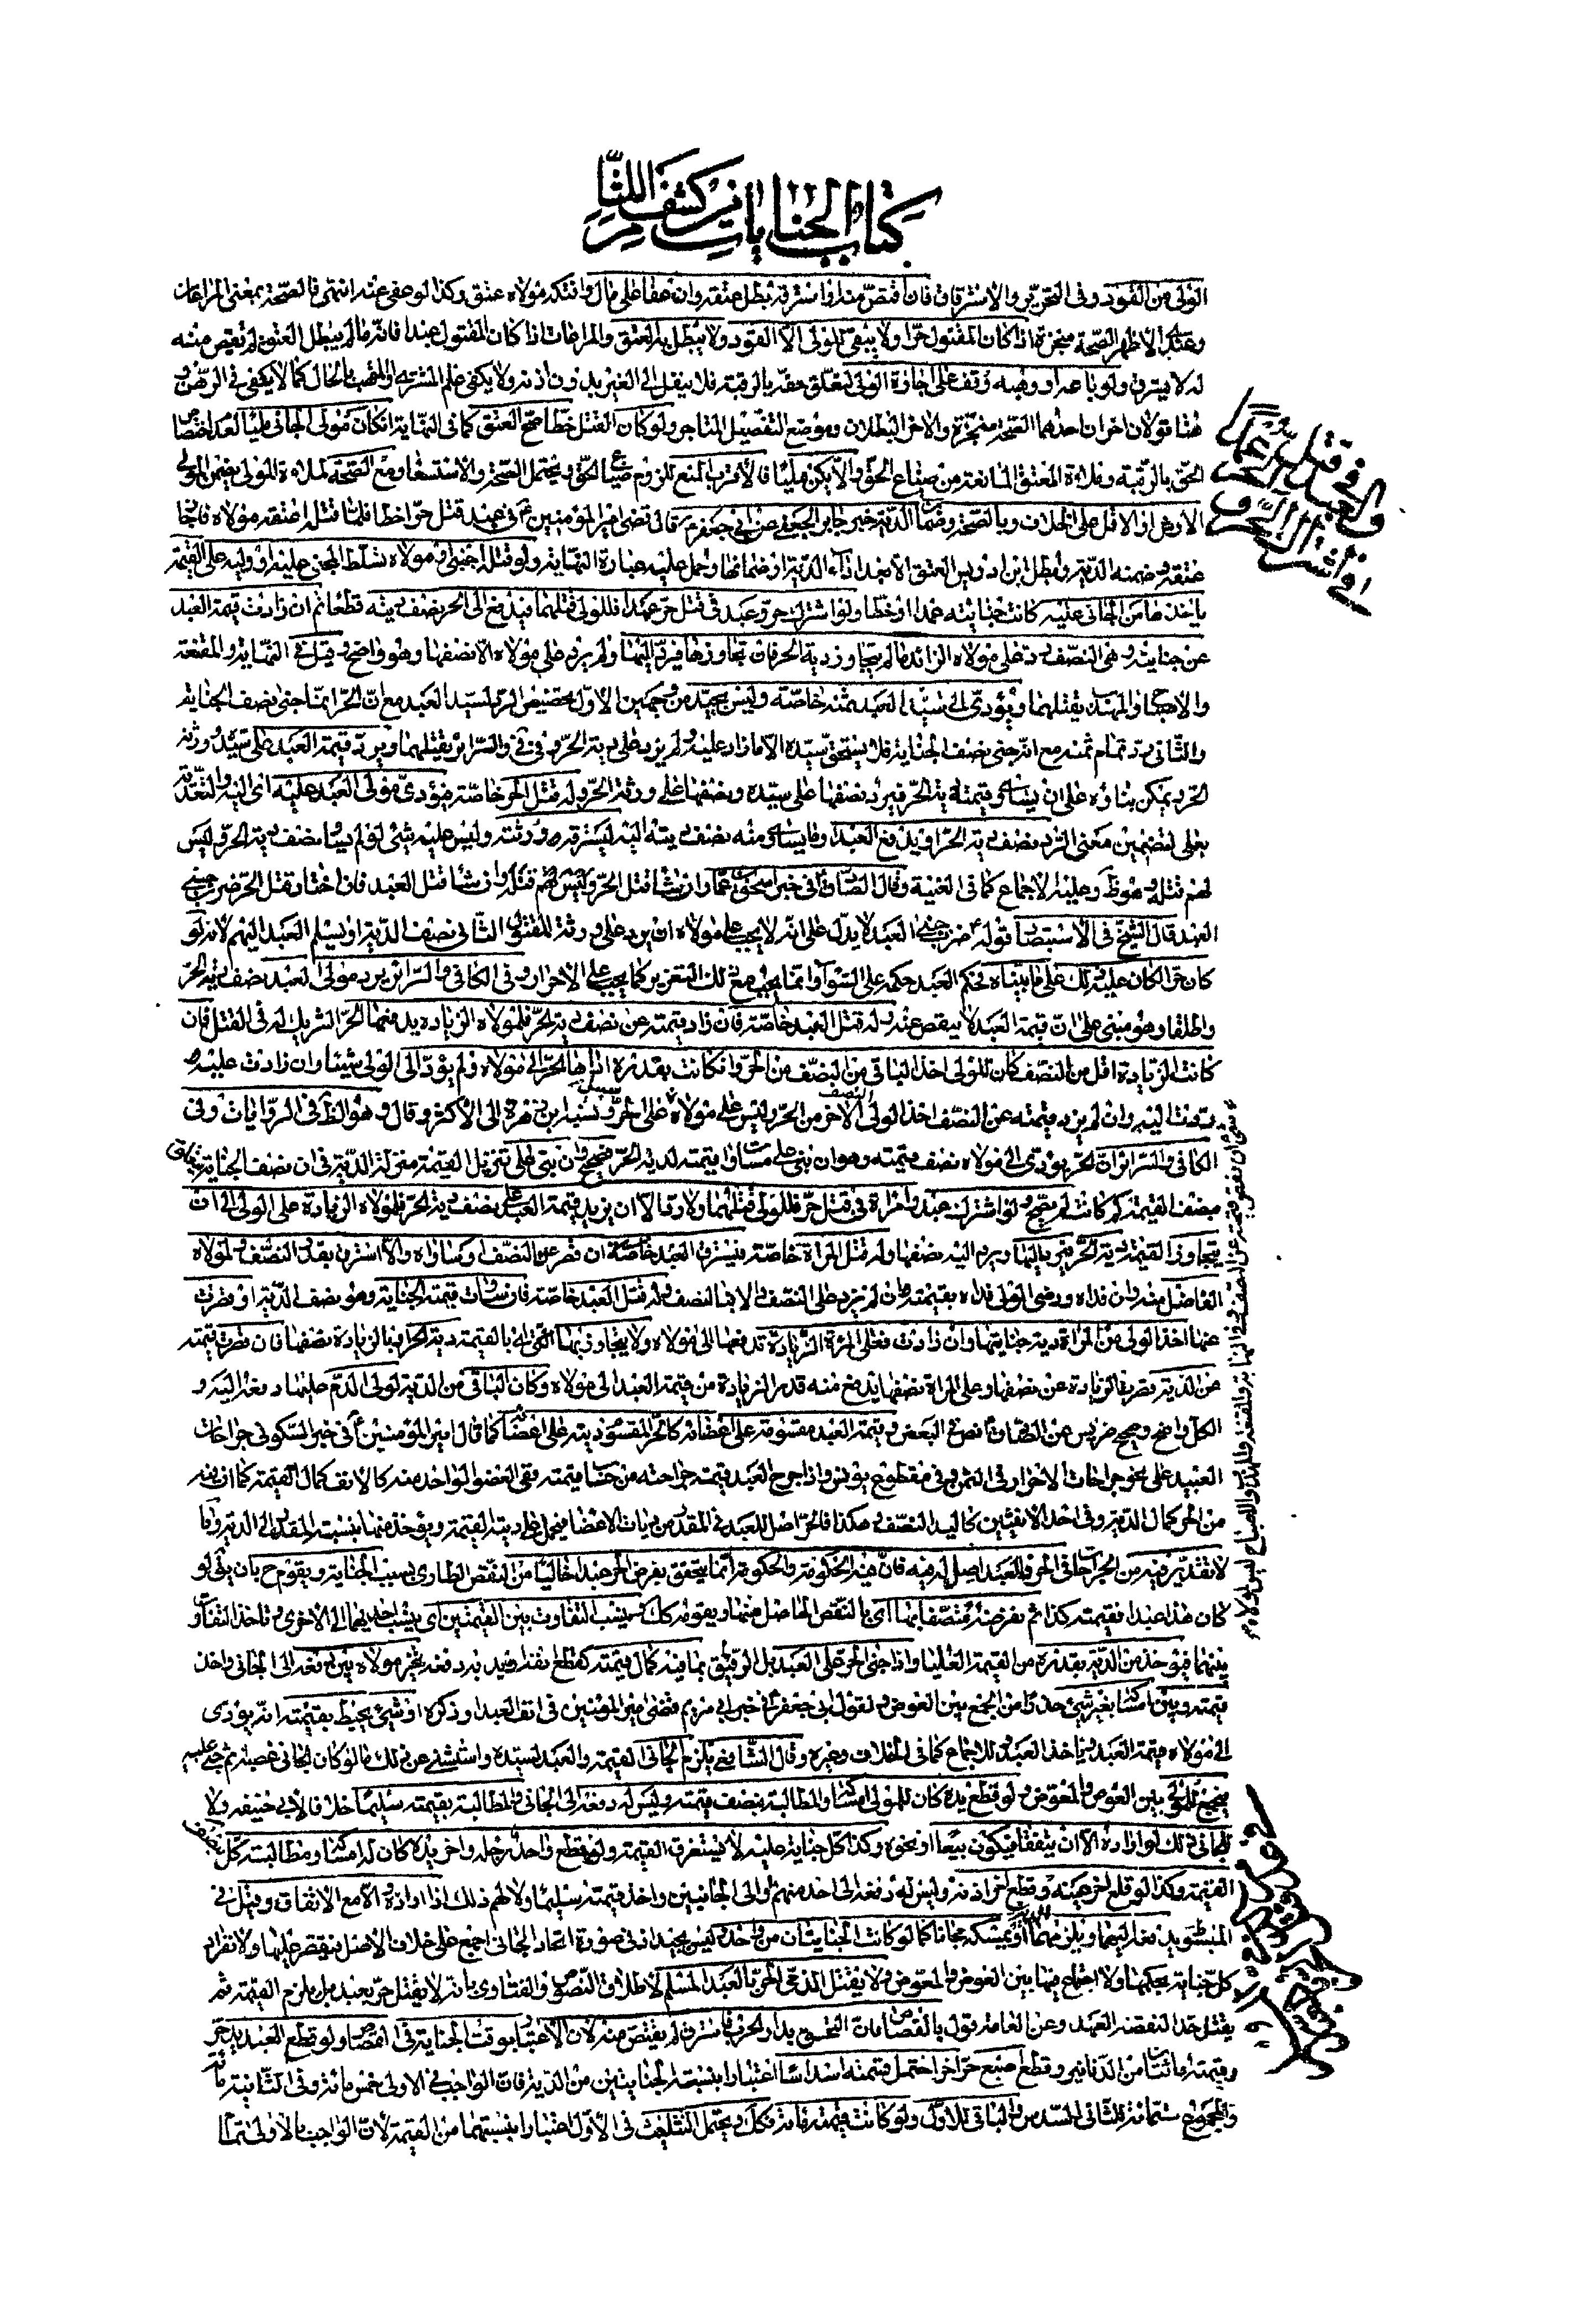 كتاب الجنايات من كشف اللثام
الولى من القود وفى التحرير والاسترقاق فان اقتص منه او استرقه بطل عتقه وان عفا على مال وافتكه مولاه عتق وكذا لو عفى عنه انتهى فالصحة بمعنى المراعاة
الاظهر الصحة منجزة اذا كان المقتول حرا ولا يبقى للولى الا القود ولا يبطل به العتق والمراعات اذا كان المقتول عبدا فانه ما لم يبطل العتق لم يقتص منه
له لا يسرى ولو باعه او وهبه وقف على اجازة الولى لتعلق حقه بالرقبة فلا ينقل الى الغير بدون اذنه ولا يكفى علم المشترى والمتهب بالحال كما لا يكفى فى الرهن و
هنا قولان اخران احدهما الصحة منجزة والاخر البطلان وموضع التفصيل المتاجر ولو كان القتل خطا صح العتق كما فى النهاية ان كان مولى الجانى مليا لعدم اختصاص
الحق بالرقبة وملاءة المعتق المانعة من ضياع الحق والا يكن مليا فالاقرب المنع للزوم ضياع الحق ويحتمل الصحة والاستسعاء ومع الصحة لملاءة المولى يضمن المولى
الارش او الاقل على الخلاف وبالصحة وضمان الدية خبر جابر الجعفى عن ابى جعفر قال قضى امير المؤمنين فى عبد قتل حرا خطا فلما قتله اعتقه مولاه فاجاز
عتقه وضمنه الدية وابطل ابن ادريس العتق الا بعد اداء الدية او ضمانها وحمل عليه عبارة النهاية ولو قتله اجنبى او مولاه تسلط المجنى عليه او وليه على القيمة
ياخذها من الجانى عليه كانت جنايته عمدا او خطا ولو اشترك حر وعبد فى قتل حر عمدا فللولى قتلهما فيدفع الى الحر نصف ديته قطعا ثم ان زادت قيمة العبد
عن جنايته وهى النصف رد على مولاه الزائد ما لم يتجاوز دية الحر فان تجاوزها فيرد اليها ولم يزد على مولاه الا نصفها وهو واضح وقيل فى النهاية والمقنعة
والاصباح والمهذب يقتلهما ويؤدى الى سيد العبد ثمنه خاصة وليس بجيد من وجهين الاول تخصيص الرد لسيد العبد مع ان الحر انما جنى نصف الجناية
والثانى رد تمام ثمنه مع انه جنى نصف الجناية فلا يستحق سيده الا ما زاد عليه ولم يزد على دية الحر وفى فى والسرائر يقتلهما ويرد قيمة العبد على سيده وورثة
الحر ويمكن بناؤه على ان يساوى قيمته دية الحر فيرد نصفها على سيده ونصفها على ورثة الحر وله قتل الحر خاصة فيؤدى مولى العبد عليه اى اليه والتعدية
بعلى لتضمين معنى الرد نصف دية الحر او يدفع العبد وما يساوى منه نصف ديته اليه ليسترقه ورثته وليس عليه شىء لو لم يساو نصف دية الحر وليس
لهم قتله وهو ظ وعليه الاجماع كما فى الغنية وقال الصادق فى خبر اسحق بن عمار ان شاء قتل الحر وان شاء قتل العبد فان اختار قتل الحر ضرب جنبى
العبد قال الشيخ فى الاستبصار قوله ضرب جنبى العبد لا يدل على انه لا يجب على مولاه ان يرد على ورثة المقتول الثانى نصف الدية او يسلم العبد اليهم لانه لو
كان حرا لكان عليه ذلك على ما بيناه فحكم العبد حكمه على السواء وانما يجب مع ذلك التعزير كما يجب على الاحرار وفى الكافى والسرائر يرد مولى العبد نصف دية الحر
واطلقا وهو مبنى على ان قيمة العبد لا ينقص عنه وله قتل العبد خاصة فان زاد قيمته عن نصف دية الحر فلمولاه الزيادة يدفعها الحر الشريك له فى القتل فان
كانت الزيادة اقل من النصف كان للولى اخذ الباقى من النصف من الحر وان كانت بقدره اداها الحر الى مولاه ولم يؤد الى الولى شيئا وان زادت عليه
ردت اليه وان لم يزد قيمته عن النصف اخذ الولى النصف الاخر من الحر وليس على مولاه على الحر سبيل ونسبه ابن زهرة الى الاكثر وقال وهو الظ فى الروايات وفى
الكافى والسرائر ان الحر يؤدى الى مولاه نصف قيمته وهو ان بنى على مساواة قيمته لدية الحر صحيح وان بنى على تنزيل القيمة منزلة الدية فى ان نصف الجناية
بنصف القيمة كم كانت لم يصح ولو اشترك عبد وامراة فى قتل حر فللولى قتلهما ولا رد الا ان يزيد قيمة العبد على نصف دية الحر فلمولاه الزيادة على الولى الى ان
يتجاوز القيمة دية الحر فيرد اليها ويرد اليه نصفها وله قتل المراة خاصة فيسترق العبد خاصة ان قصر عن النصف او ساواه والا استرق بقدر النصف ولمولاه
الفاضل منه وان فداه ورضى الولى فداه بقيمته ما لم تزد على النصف والا فبالنصف وله قتل العبد خاصة فان ساوت قيمته الجناية وهو نصف الدية او قصرت
عنها اخذ الولى من المراة دية جنايتها وان زادت فعلى المراة الزيادة تدفعها الى مولاه ولا يتجاوز بها القيمة دية الحر فالزيادة نصفها فان قصرت قيمته
عن الدية بقدر الزيادة عن نصفها وعلى المراة نصفها يدفع منه قدر الزيادة من قيمة العبد الى مولاه وكان الباقى من الدية لولى الدم عليها دفعه اليه و
الكل واضح وصحيح ضريس عن الصادق نص فى البعض وقيمة العبد مقسومة على اعضائه كالحر المقسوم ديته على اعضائه كما قال امير المؤمنين فى خبر السكونى جراحات
العبيد على نحو جراحات الاحرار فى الثمن وفى مقطوع يونس واذا جرح العبد فقيمة جراحته من حساب قيمته ففى العضو الواحد منه كالانف كمال القيمة كما ان فيه
من الحر كمال الدية وفى احد الاثنين كاليد النصف وهكذا فالحر اصل للعبد فى المقدر من ديات الاعضاء فيحمل على ديته القيمة ويؤخذ منها بنسبة المقدر الى الدية وما
لا تقدير فيه من الجراحات فى الحر فالعبد اصل له فيه فان فيه الحكومة والحكومة انما يتحقق بفرض الحر عبدا خاليا من النقص الطارى بسبب الجناية ويقوم ح بان يق لو
كان هذا عبدا فقيمته كذا ثم نفرضه متصفا بها اى بالنقص الحاصل منها ويقوم كك وينسب التفاوت بين القيمتين اى ينسب احديهما الى الاخرى وتاخذ التفاوت
بينهما فيؤخذ من الدية بقدره من القيمة العليا واذا جنى الحر على العبد بل الرقيق بما فيه كمال قيمته كقطع انفه او يديه تخير مولاه بين دفعه الى الجانى واخذ
قيمته وبين امساكه بغير شىء حذرا من الجمع بين العوض والمعوض ولقول ابى جعفر فى خبر ابى مريم قضى امير المؤمنين فى انف العبد او ذكره او شىء يحيط بقيمته انه يؤدى
الى مولاه قيمة العبد وياخذ العبد وللاجماع كما فى الخلاف وغيره وقال الشافعى يلزم الجانى القيمة والعبد لسيده واستثنى عن ذلك ما لو كان الجانى غصبه ثم جنى عليه
يجمع للمولى بين العوض والمعوض ولو قطع يده كان للمولى امساكه والمطالبة بنصف قيمته وليس له دفعه الى الجانى والمطالبة بقيمته سليما خلافا لابى حنيفة ولا
للجانى ذلك لو اراده الا ان يتفقا فيكون بيعا او نحوه وكذا كل جناية عليه لا تستغرق القيمة ولو قطع واحد رجله واخر يده كان له امساكه ومطالبة كل بنصف
القيمة وكذا لو قلع اخر عينه وقطع اخر اذنه وليس له دفعه الى احد منهم او الى الجانيين واخذ قيمته سليما ولا لهم ذلك اذا ارادوه الا مع الاتفاق وقيل فى
المبسوط يدفعه اليهما ويلزمهما الدية او يمسكه مجانا كما لو كانت الجنايتان من واحد وليس بجيد اذ فى صورة اتحاد الجانى اجمع على خلاف الاصل فيقتصر عليها ولانفراد
كل جناية بحكمها ولا اجتماع فيها بين العوض والمعوض ولا يقتل الذمى الحر بالعبد المسلم لاطلاق النصوص والفتاوى بانه لا يقتل حر بعبد بل يلزم القيمة ثم
يقتل حدا لنقضه العهد وعن العامة قول بالقصاص فان التحق بدار الحرب فاسترق لم يقتص منه لان الاعتبار بوقت الجناية فى القصاص ولو قطع العبد يد حر
وقيمته مائتان من الدنانير وقطع اصبع حر اخر احتمل قيمته اسداسا اعتبارا بنسبة الجنايتين من الدية فان الواجب فى الاولى خمس مائة وفى الثانية مائة
والمجموع ستمائة فللثانى السدس والباقى للاول ولو كانت قيمته مائة فكك ويحتمل التثليث فى الاول اعتبارا بنسبتهما من القيمة لان الواجب بالاولى تمام